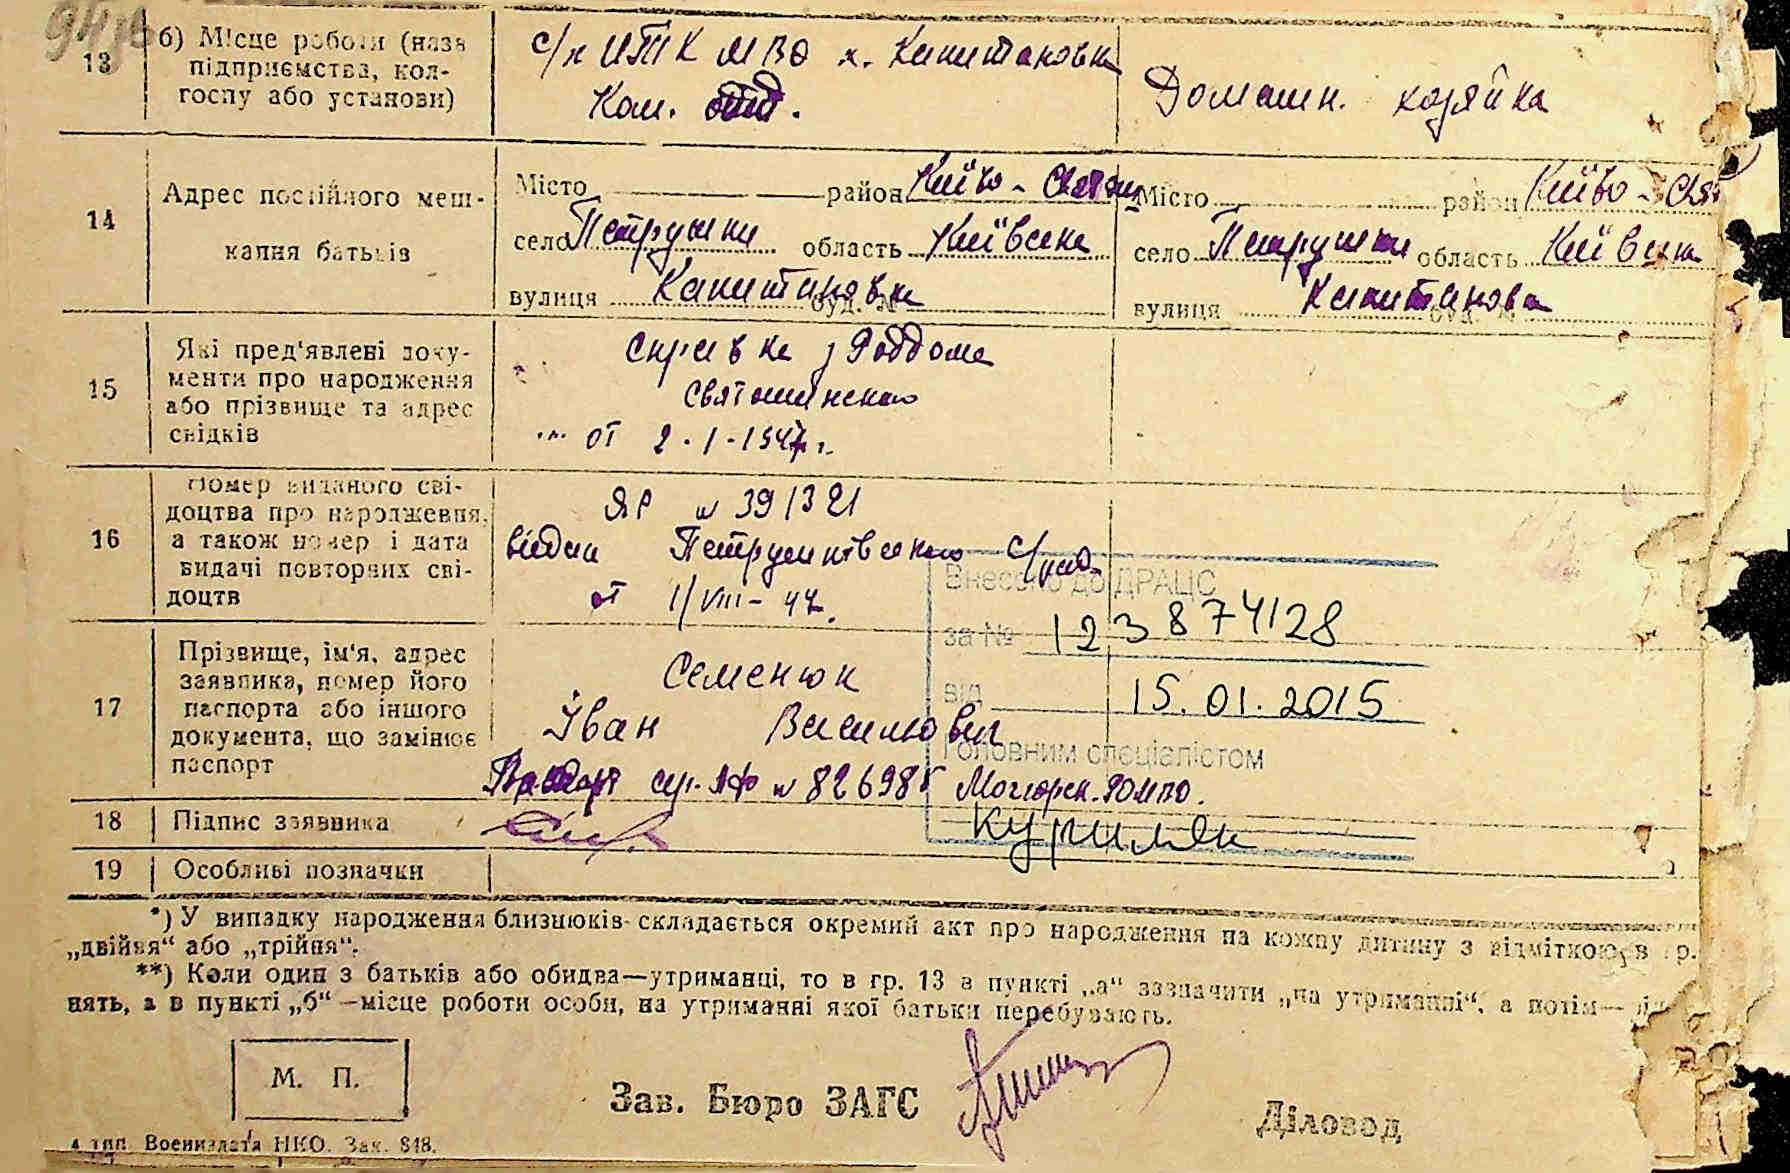 13 б) Місце роботи (назв підприємства, кол-госпу або установи)
с/х ИТК МВД х. Капитановка
Ком.
Домашн. хозяйка
14 Адрес постійного меш-кання батьків
Місто район Київо-Святош
село Петрушки область Київська
вулиця Капитановка буд. №
Місто район Київо-Свя
село Петрушки область Київська
вулиця Капитанова буд. №
15 Які пред'явлені доку-менти про народження або прізвище та адрес свідків
Справка з Роддома
Святошинского
от 2-1-1947 г.
16 Номер виданого сві-доцтва про народження, а також номер і дата видачі повторних сві-доцтв
ЯР № 391321
видан Петрушковского с/рад.
от 1/VIII-47.
Внесено до ДРАЦС
за № 123874128
від 15.01.2015
Головним спеціалістом
17 Прізвище, ім'я, адрес заявника, номер його паспорта або іншого документа, що замінює паспорт
Семенюк
Іван Васильович
Паспорт сер. № 826985
18 Підпис заявника
19 Особливі позначки
*) У випадку народження близнюків складається окремий акт про народження на кожну дитину з відміткою в гр.
„двійня“ або „трійня“.
**) Коли один з батьків або обидва—утриманці, то в гр. 13 в пункті „а“ зазначити „на утриманні“, а потім—
нять, а в пункті „б“ —місце роботи особи, на утриманні якої батьки перебувають.
М. П.
Зав. Бюро ЗАГС
Діловод
Воениздата НКО. Зак. 848.